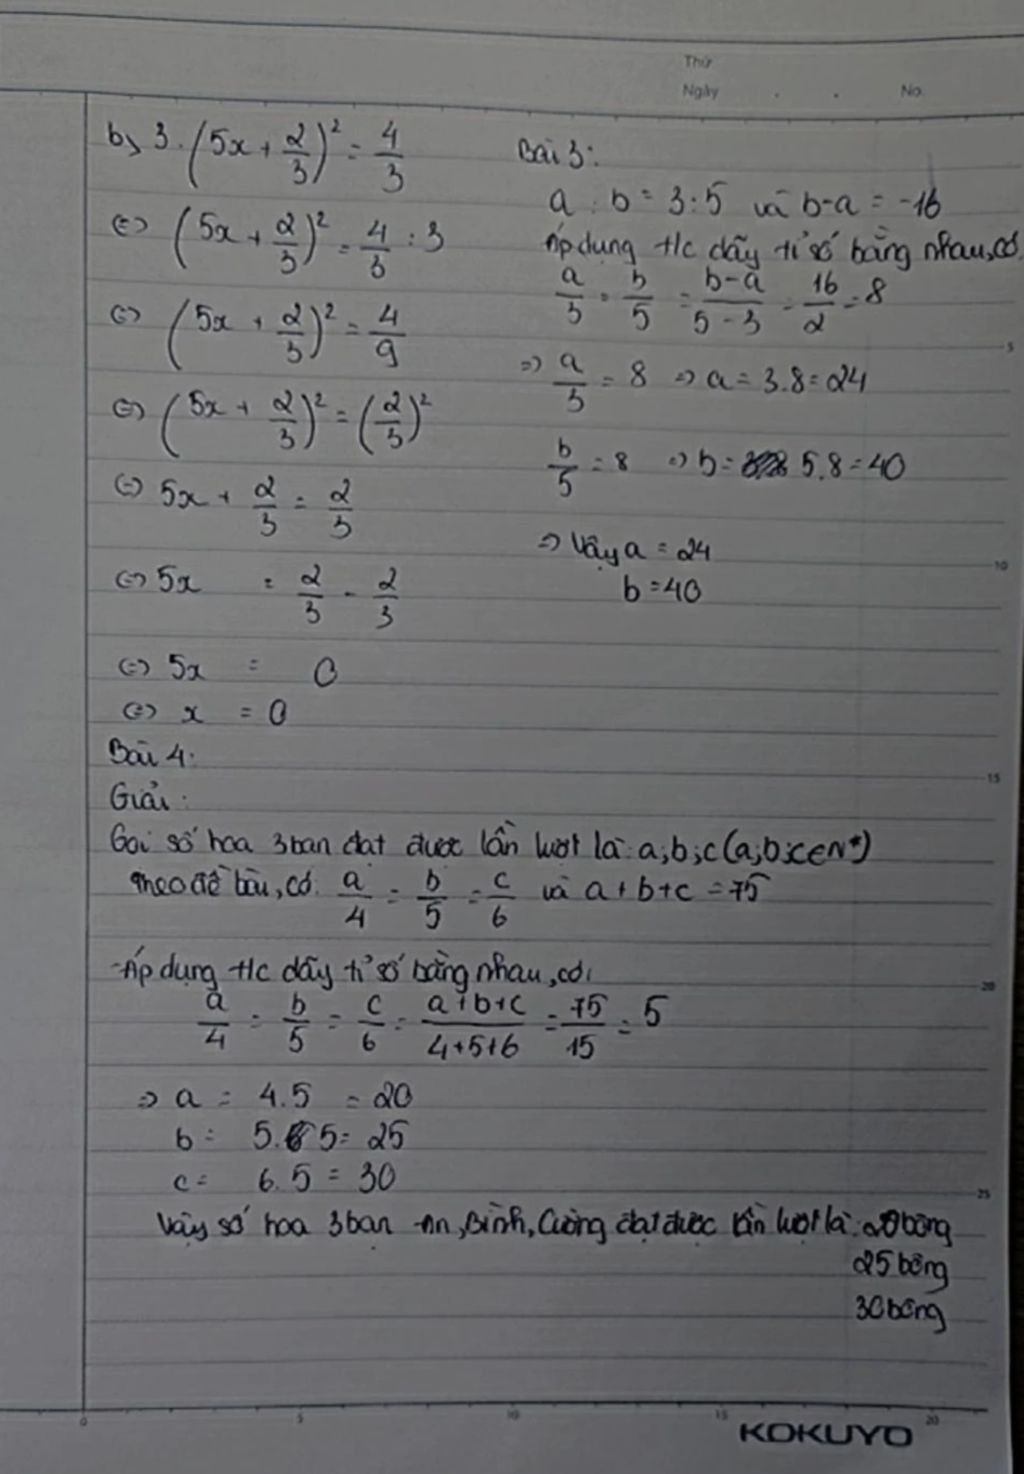 Thứ
Ngày . . No.
b) 3.(5x + 2/3)² = 4/3
<=> (5x + 2/3)² = 4/3 : 3
<=> (5x + 2/3)² = 4/9
<=> (5x + 2/3)² = (2/3)²
<=> 5x + 2/3 = 2/3
<=> 5x = 2/3 - 2/3
<=> 5x = 0
<=> x = 0
Bài 3:
a : b = 3 : 5 và b-a = -16
Áp dụng t/c dãy tỉ số bằng nhau, có
a/3 = b/5 = b-a/5-3 = 16/2 = 8
=> a/3 = 8 => a = 3.8 = 24
b/5 = 8 => b = 5.8 = 40
=> Vậy a = 24
b = 40
Bài 4:
Giải:
Gọi số hoa 3 bạn đạt được lần lượt là: a;b;c (a;b;c∈N*)
Theo đề bài, có: a/4 = b/5 = c/6 và a + b + c = 75
Áp dụng t/c dãy tỉ số bằng nhau, có:
a/4 = b/5 = c/6 = a+b+c/4+5+6 = 75/15 = 5
=> a = 4.5 = 20
b = 5.5 = 25
c = 6.5 = 30
Vậy số hoa 3 bạn An, Bình, Cường đạt được lần lượt là: 20 bông
25 bông
30 bông
5
10
15
20
25
0 5 10 15 20
KOKUYO